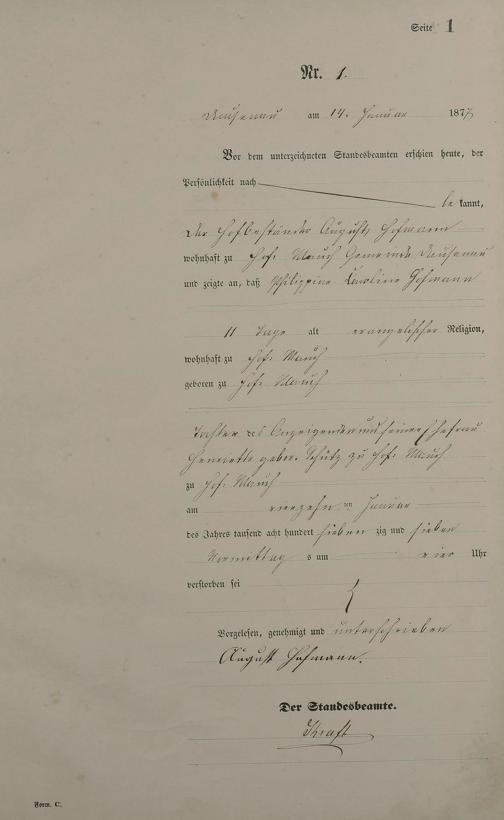 Seite 1
Nr. 1.
Dausenau am 14. Januar 1877
Vor dem unterzeichneten Standesbeamten erschien heute, der
Persönlichkeit nach
be kannt,
der Hofbeständer August Hofmann
wohnhaft zu Hof Mauch Gemeinde Dausenau
und zeigte an, daß Philippine Karoline Hofmann
11 Tage alt evangelischer Religion,
wohnhaft zu Hof Mauch
geboren zu Hof Mauch
Tochter des Anzeigenden und seiner Ehefrau
Henriette gebor. Schütz zu Hof Mauch
zu Hof Mauch
am vierzehnten Januar
des Jahres tausend acht hundert sieben zig und sieben
Vormittags um vier Uhr
verstorben sei
Vorgelesen, genehmigt und unterschrieben
August Hofmann.
Der Standesbeamte.
Kraft
Form. C.